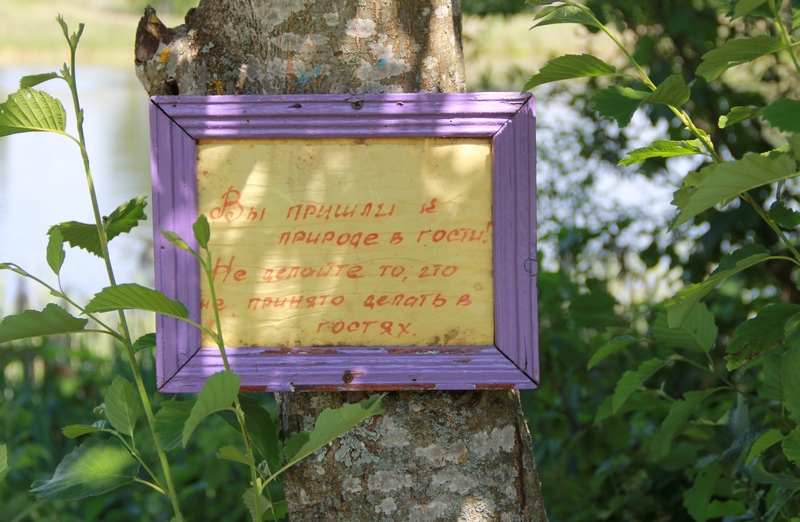 Вы пришли к
природе в гости!
Не делайте то, что
не принято делать в
гостях.